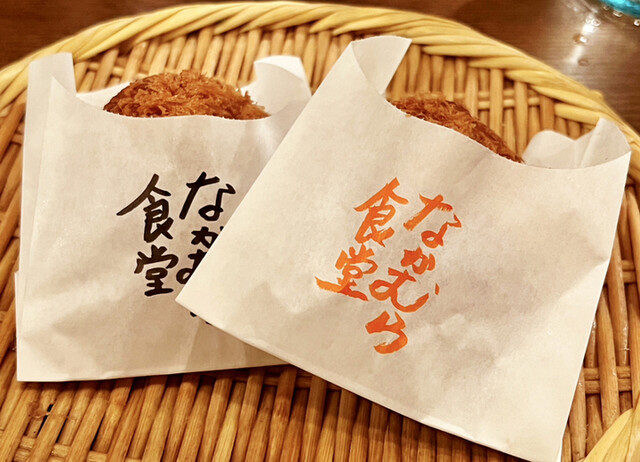 なかむ
食堂
なかむら
食堂